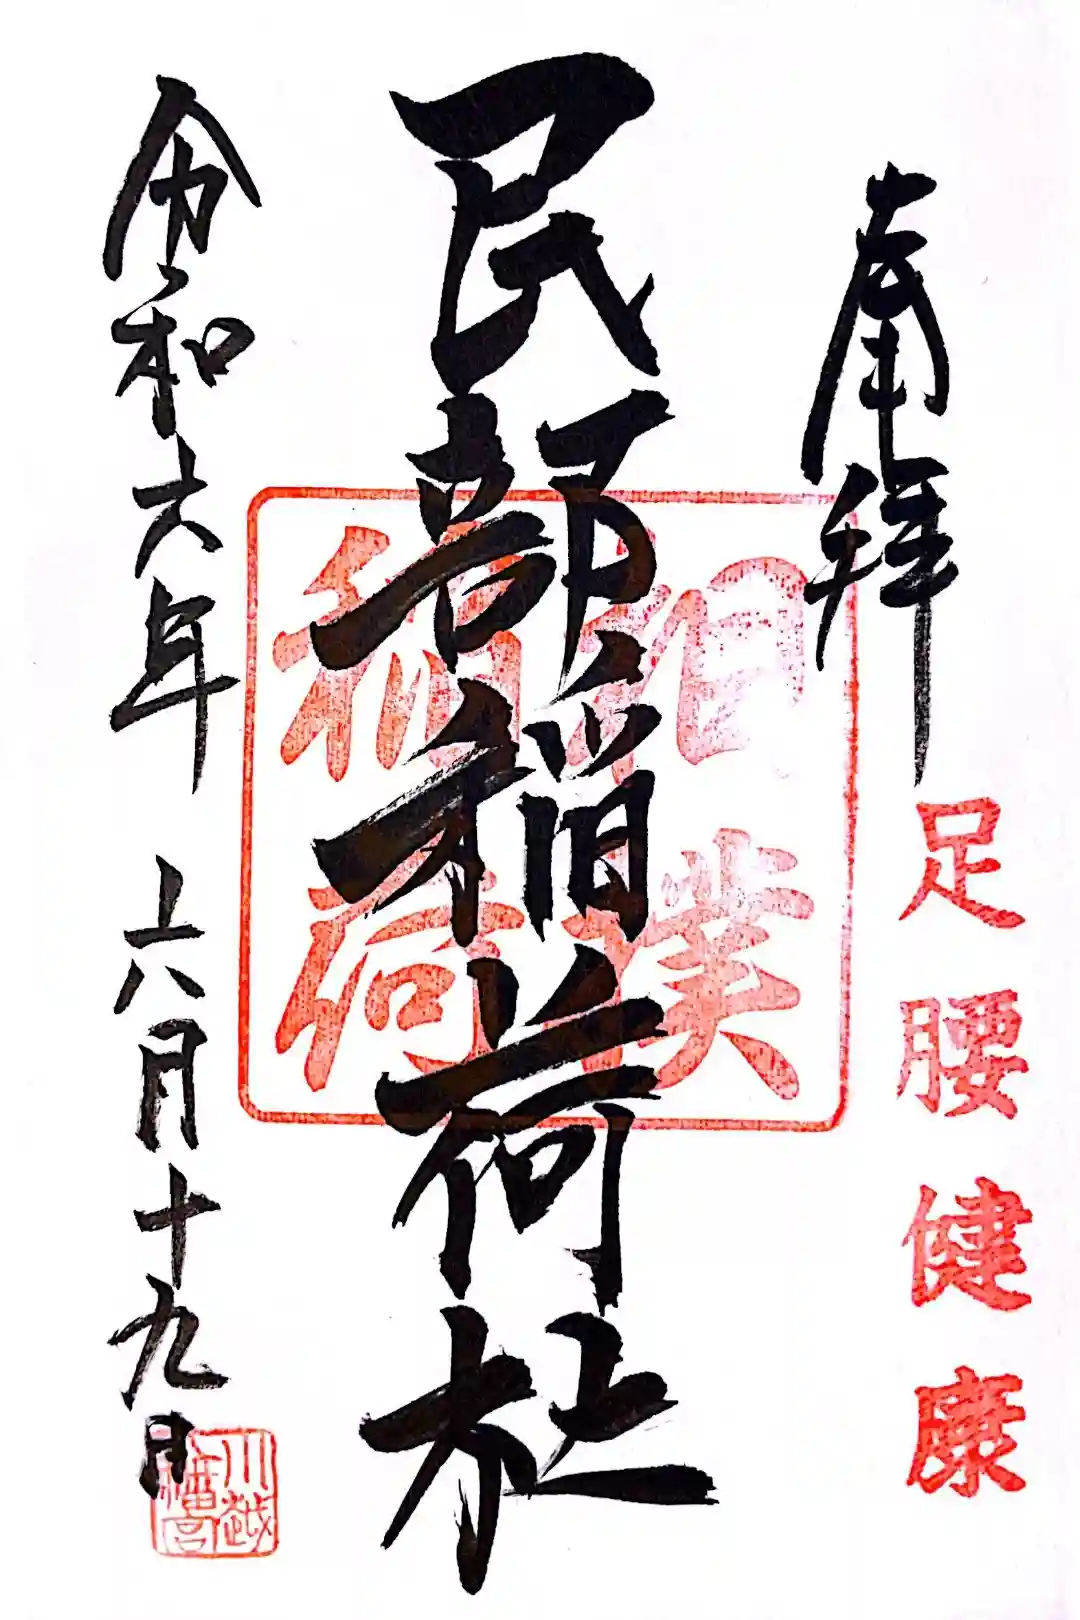 奉拝
足腰健康
民部稲荷社
相撲
稲荷
令和六年 六月十九日
川越
八幡宮